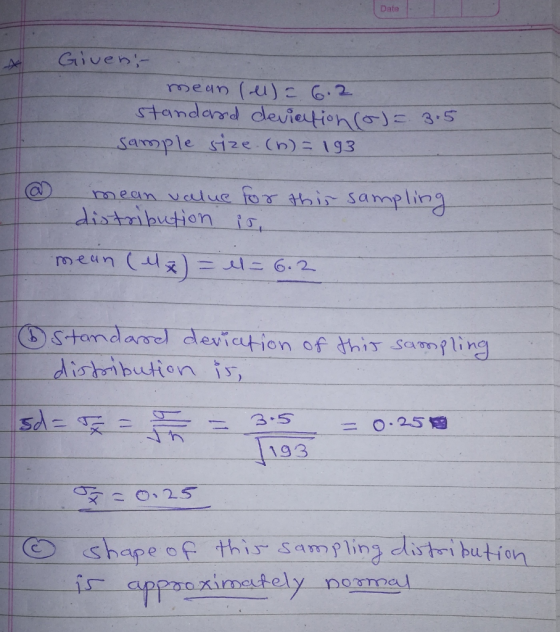 Date
* Given:-
mean (μ) = 6.2
standard deviation (σ) = 3.5
sample size (n) = 193
ⓐ mean value for this sampling
distribution is,
mean (μx̄) = μ = 6.2
ⓑ standard deviation of this sampling
distribution is,
sd = σx̄ = σ/√n = 3.5/√193 = 0.25
σx̄ = 0.25
ⓒ shape of this sampling distribution
is approximately normal